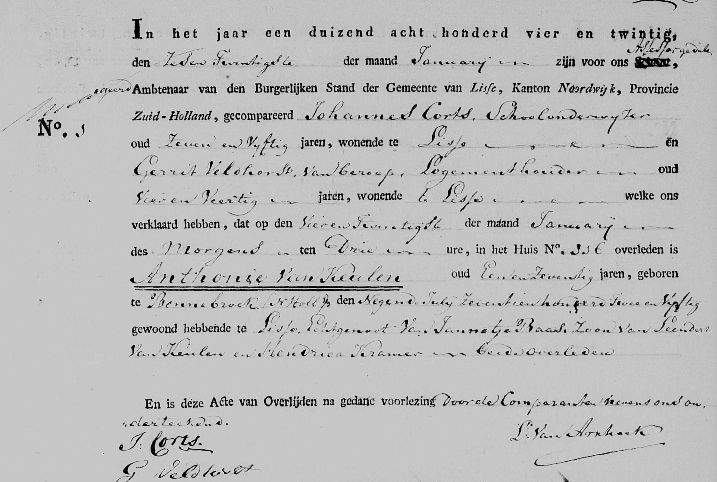 In het jaar een duizend acht honderd vier en twintig,
den Zes en Twintigste der maand Januarij zijn voor ons Assessor gedele
Ambtenaar van den Burgerlijken Stand der Gemeente van Lisse, Kanton Noordwijk, Provincie
No. 3 Zuid-Holland, gecompareerd Johannes Corts, Schoolonderwyzer
oud Zeven en Vyftig jaren, wonende te Lisse en
Gerrit Veldhorst, van beroep, Logementhouder oud
Vier en Veertig jaren, wonende te Lisse welke ons
verklaard hebben, dat op den Vier en Twintigste der maand Januarij
des Morgens ten Drie ure, in het Huis No. 336 overleden is
Anthonie Van Keulen oud Een en Zeventig jaren, geboren
te Bennebroek N Holl den Negende July Zeventienhonderd Twee en Vyftig
gewoond hebbende te Lisse, Echtgenoot Van Jannetje Raas Zoon Van Leendert
Van Keulen en Hendrica Kramer beide overleden
En is deze Acte van Overlijden na gedane voorlezing door de Comparanten nevens ons on
derteekend.
J. Corts. Van Arnhoek
G Veldhorst